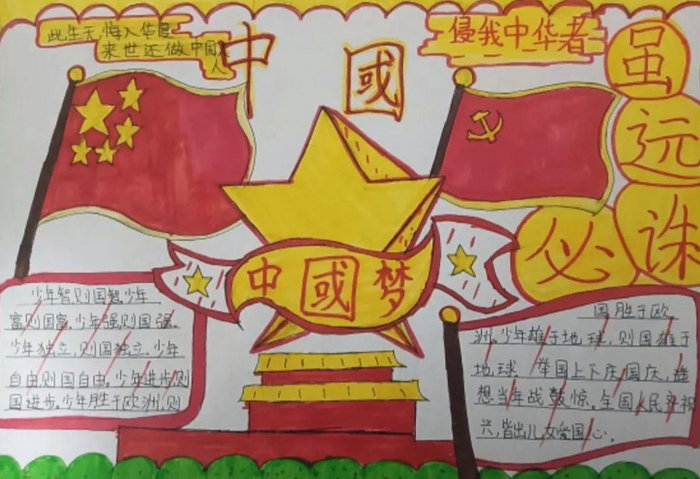 此生无悔入华夏
来世还做中国人
中國
侵我中华者
虽远必诛
中國梦
少年智则国智.少年
富则国富.少年强则国强.
少年独立,则国独立.少年
自由则国自由,少年进步,则
国进步.少年胜于欧洲,则
国胜于欧
洲.少年雄于地球,则国雄于
地球. 举国上下庆国庆,
想当年战鼓惊.全国人民齐祝
兴,皆出儿女爱国心.